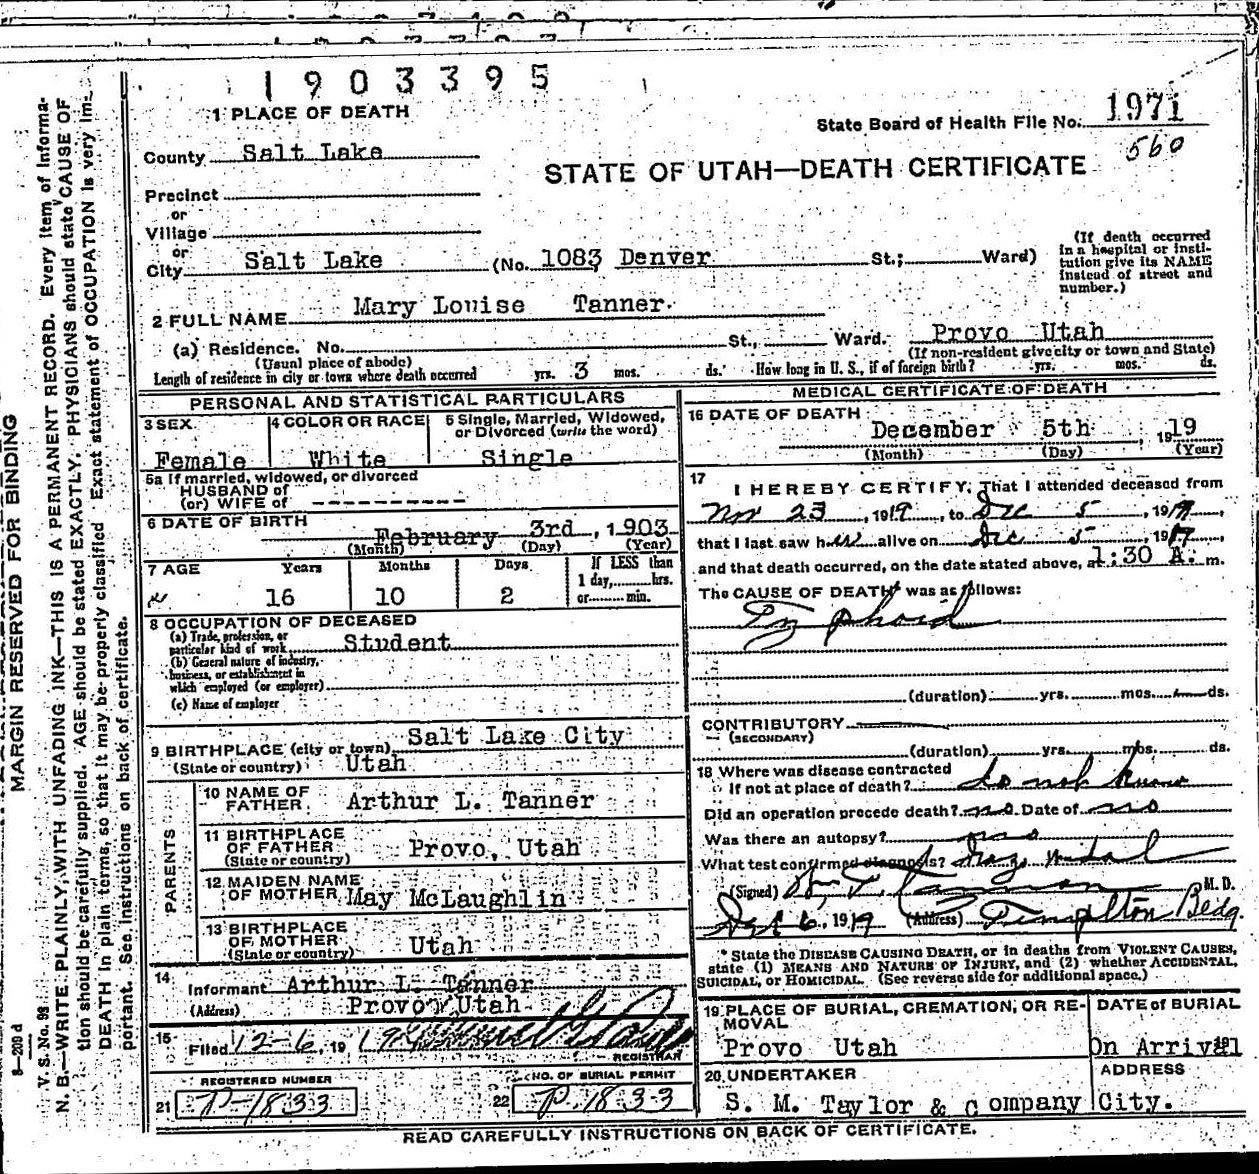 1903395
1 PLACE OF DEATH
State Board of Health File No. 1971
560
County Salt Lake
STATE OF UTAH—DEATH CERTIFICATE
Precinct
or
Village
or
City Salt Lake (No. 1083 Denver St.; Ward)
(If death occurred in a hospital or institution give its NAME instead of street and number.)
2 FULL NAME Mary Louise Tanner.
(a) Residence. No. St., Ward. Provo Utah
(Usual place of abode) (If non-resident give city or town and State)
Length of residence in city or town where death occurred yrs. 3 mos. ds. How long in U. S., if of foreign birth? yrs. mos. ds.
PERSONAL AND STATISTICAL PARTICULARS
3 SEX 4 COLOR OR RACE 5 Single, Married, Widowed, or Divorced (write the word)
Female White Single
5a If married, widowed, or divorced
HUSBAND of
(or) WIFE of
6 DATE OF BIRTH February 3rd, 1903
(Month) (Day) (Year)
7 AGE Years Months Days If LESS than
1 day, hrs.
16 10 2 or min.
8 OCCUPATION OF DECEASED
(a) Trade, profession, or
particular kind of work Student
(b) General nature of industry,
business, or establishment in
which employed (or employer)
(c) Name of employer
9 BIRTHPLACE (city or town) Salt Lake City
(State or country) Utah
PARENTS
10 NAME OF
FATHER Arthur L. Tanner
11 BIRTHPLACE
OF FATHER Provo, Utah
(State or country)
12 MAIDEN NAME
OF MOTHER May McLaughlin
13 BIRTHPLACE
OF MOTHER Utah
(State or country)
14
Informant Arthur L. Tanner
(Address) Provo, Utah
15 Filed 12-6, 19
REGISTRAR
REGISTERED NUMBER
21 P-1833
NO. OF BURIAL PERMIT
22 P. 1833
MEDICAL CERTIFICATE OF DEATH
16 DATE OF DEATH
December 5th, 1919
(Month) (Day) (Year)
17 I HEREBY CERTIFY, That I attended deceased from
Nov 23, 1919, to Dec 5, 1919,
that I last saw her alive on Dec 5, 1919
and that death occurred, on the date stated above, at 1:30 A. m.
The CAUSE OF DEATH* was as follows:
Typhoid
(duration) yrs. mos. ds.
CONTRIBUTORY
(SECONDARY)
(duration) yrs. mos. ds.
18 Where was disease contracted
If not at place of death? do not know
Did an operation precede death? no Date of no
Was there an autopsy? no
What test confirmed diagnosis?
(Signed) M. D.
6, 1919 (Address) Templeton Bldg.
* State the DISEASE CAUSING DEATH, or in deaths from VIOLENT CAUSES,
state (1) MEANS AND NATURE OF INJURY, and (2) whether ACCIDENTAL,
SUICIDAL, or HOMICIDAL. (See reverse side for additional space.)
19 PLACE OF BURIAL, CREMATION, OR REMOVAL DATE of BURIAL
Provo Utah On Arrival 19
20 UNDERTAKER ADDRESS
S. M. Taylor & Company City.
READ CAREFULLY INSTRUCTIONS ON BACK OF CERTIFICATE.
S—209 d
V. S. No. 99
MARGIN RESERVED FOR BINDING
N. B.—WRITE PLAINLY, WITH UNFADING INK—THIS IS A PERMANENT RECORD. Every item of Information should be carefully supplied. AGE should be stated EXACTLY. PHYSICIANS should state CAUSE OF DEATH in plain terms, so that it may be properly classified. Exact statement of OCCUPATION is very important. See instructions on back of certificate.